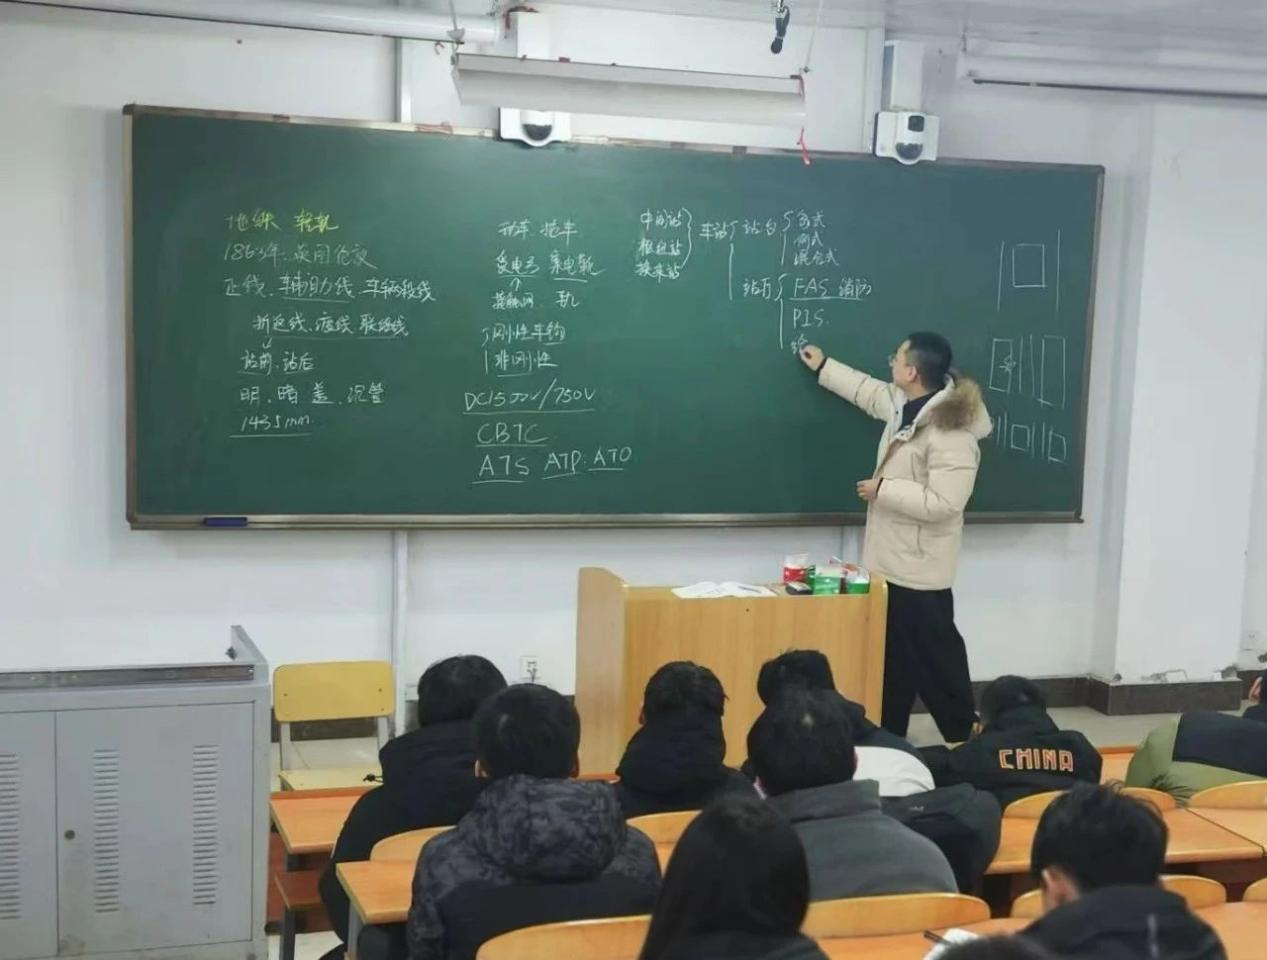 地铁 轻轨
1863年:英国伦敦
正线、车辅助线、车辆段线
折返线、渡线、联络线
站前、站后
明、暗、盖、沉管
1435mm
动车 拖车
受电弓 集电靴
接触网、轨
刚性车钩
非刚性
DC1500V/750V
CBTC
ATS ATP、ATO
中间站
枢纽站
换乘站
车站
站台
岛式
侧式
混合式
站厅
FAS 消防
PIS
CHINA